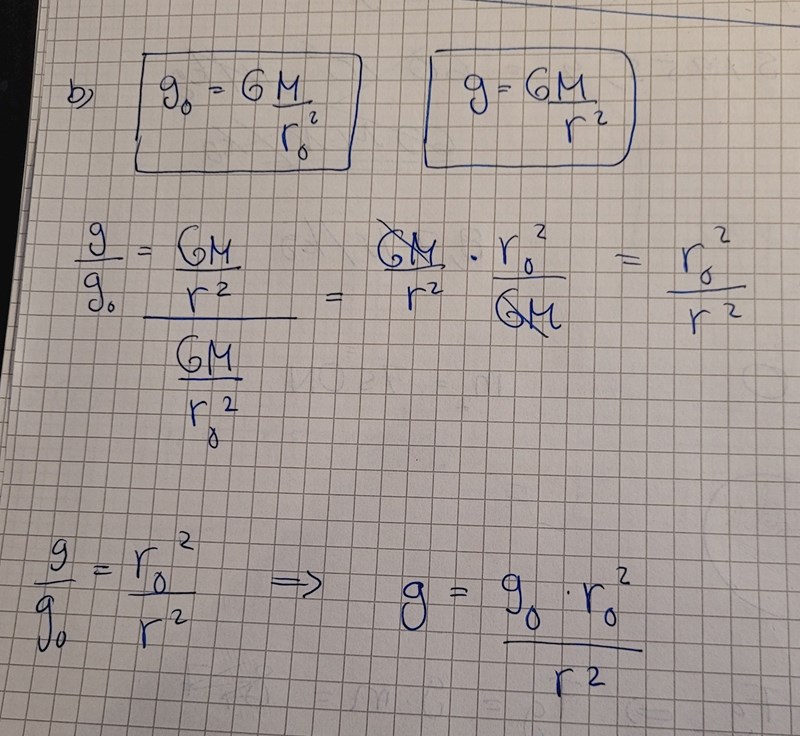 b) g₀ = GM/r₀² g = GM/r²
g/g₀ = (GM/r²)/(GM/r₀²) = GM/r² · r₀²/GM = r₀²/r²
g/g₀ = r₀²/r² ⇒ g = g₀ · r₀²/r²